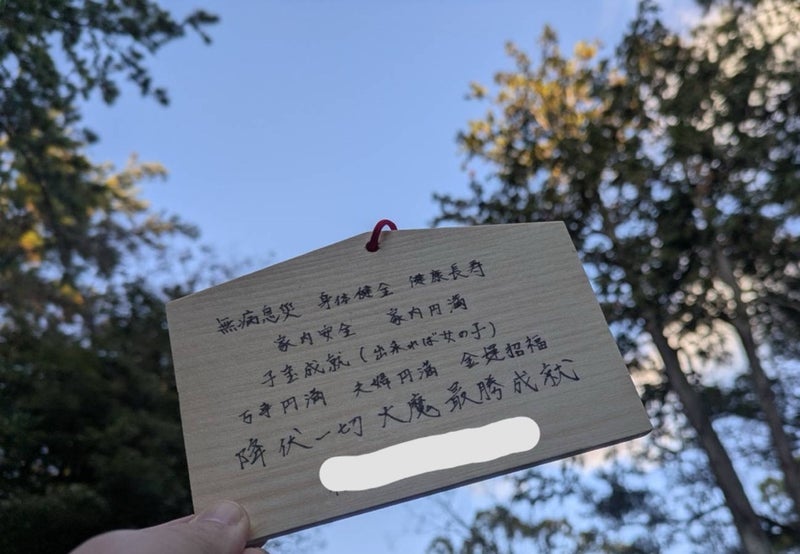 無病息災 身体健全 健康長寿
家内安全 家内円満
子宝成就(出来れば女の子)
万事円満 夫婦円満 金運招福
降伏一切大魔最勝成就